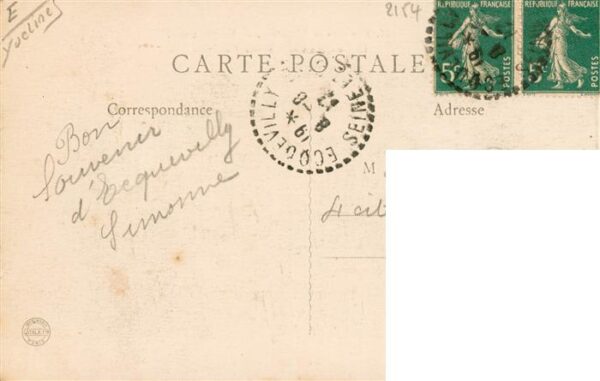 E
Yvelines
2154
RÉPUBLIQUE FRANÇAISE
RÉPUBLIQUE FRANÇAISE
5
POSTES
POSTES
CARTE POSTALE
Correspondance
Adresse
ECQUEVILLY
Bon
Souvenir
d'Ecquevilly
Simonne
M
4 cit